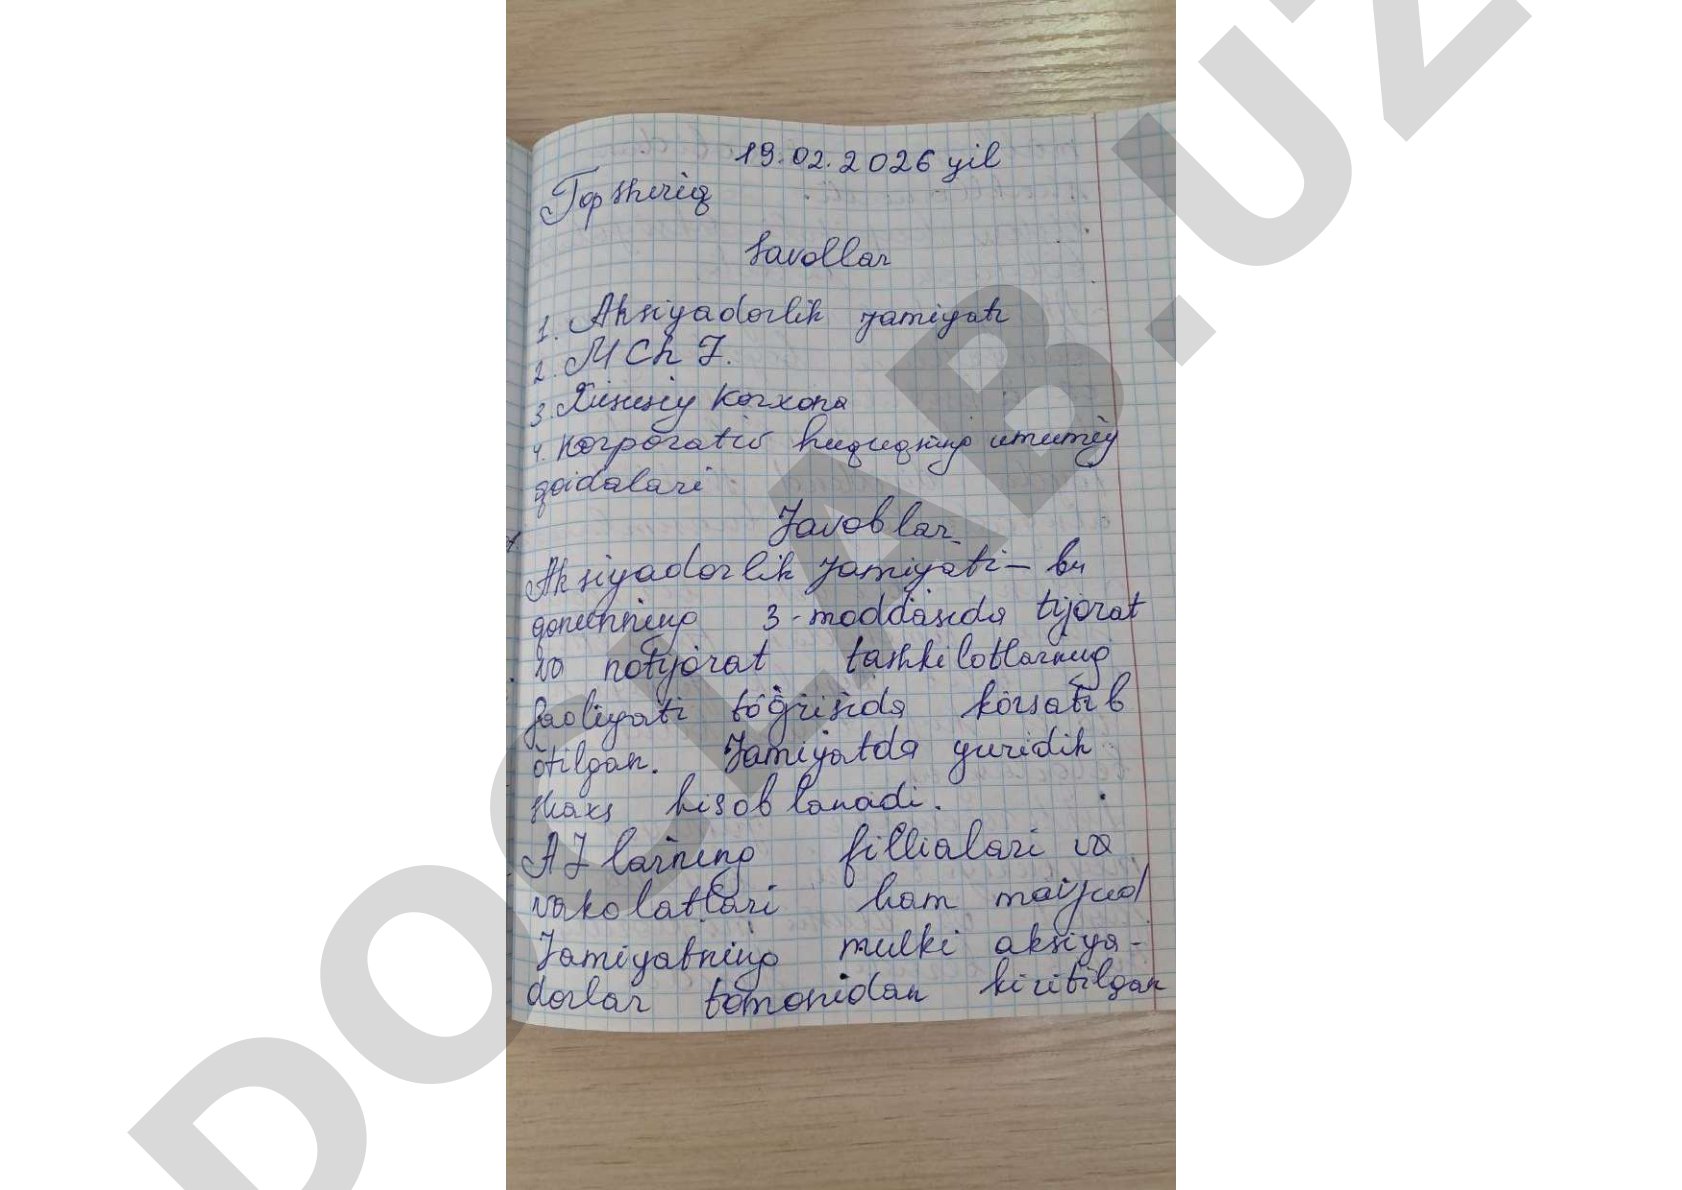 19.02.2026 yil
Topshiriq
Savollar
1. Aksiyadorlik jamiyati
2. MChJ.
3. Xususiy korxona
4. Korporativ huquqning umumiy
qoidalari
Javoblar
1.
Aksiyadorlik jamiyati – bu
qonunning 3-moddasida tijorat
va notijorat tashkilotlarning
faoliyati tõg̃risida kõrsatib
õtilgan. Jamiyatda yuridik
shaxs hisoblanadi.
AJ larning fillialari va
vakolatlari ham mavjud
Jamiyatning mulki aksiya-
dorlar tomonidan kiritilgan
DOCLAB.UZ